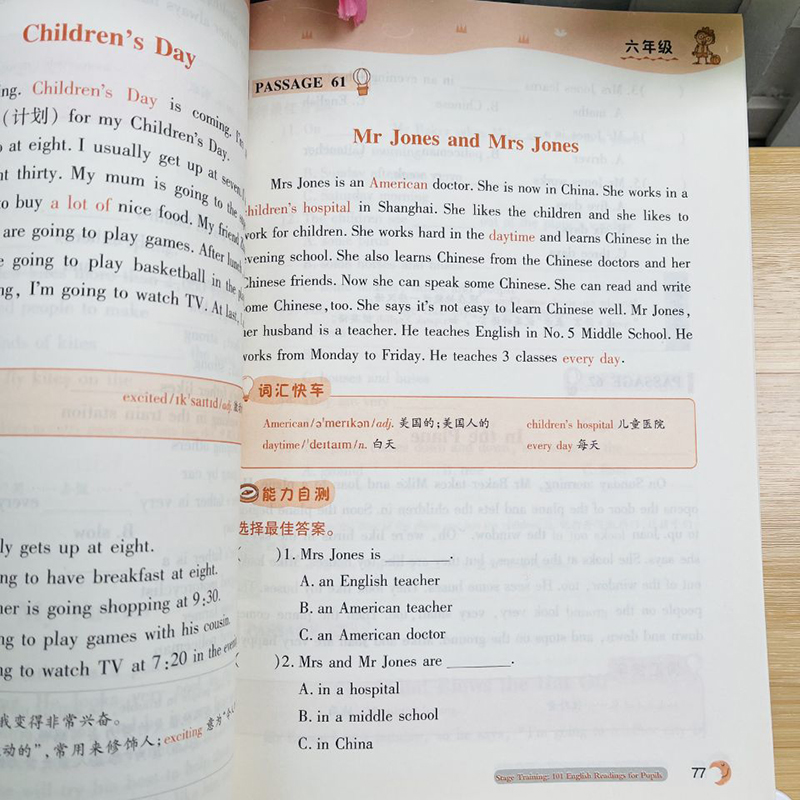 Children's Day
ing. Children's Day is coming. I'm
(计划) for my Children's Day.
at eight. I usually get up at seven
thirty. My mum is going to the
to buy a lot of nice food. My friend
are going to play games. After lunch
going to play basketball in the
I'm going to watch TV. At last,
excited/ɪkˈsaɪtɪd/adj.
gets up at eight.
to have breakfast at eight.
is going shopping at 9:30.
to play games with his cousin.
to watch TV at 7:20 in the
我变得非常兴奋。
动的”,常用来修饰人;exciting 意为“
六年级
PASSAGE 61
Mr Jones and Mrs Jones
Mrs Jones is an American doctor. She is now in China. She works in a
children's hospital in Shanghai. She likes the children and she likes to
work for children. She works hard in the daytime and learns Chinese in the
evening school. She also learns Chinese from the Chinese doctors and her
Chinese friends. Now she can speak some Chinese. She can read and write
some Chinese, too. She says it's not easy to learn Chinese well. Mr Jones,
her husband is a teacher. He teaches English in No. 5 Middle School. He
works from Monday to Friday. He teaches 3 classes every day.
词汇快车
American/əˈmerɪkən/adj. 美国的;美国人的 children's hospital 儿童医院
daytime/ˈdeɪtaɪm/n. 白天 every day 每天
能力自测
选择最佳答案。
( )1. Mrs Jones is ________.
A. an English teacher
B. an American teacher
C. an American doctor
( )2. Mrs and Mr Jones are ________.
A. in a hospital
B. in a middle school
C. in China
Stage Training: 101 English Readings for Pupils
77